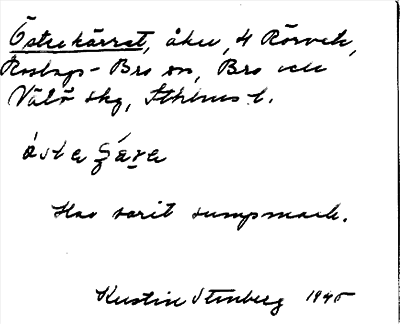 Östekärret, åker, 4 Rörvik,
Roslags-Bro sn, Bro och
Vätö skg, Sthlms l.
Har varit sumpmark.
Kerstin Stenberg 1945